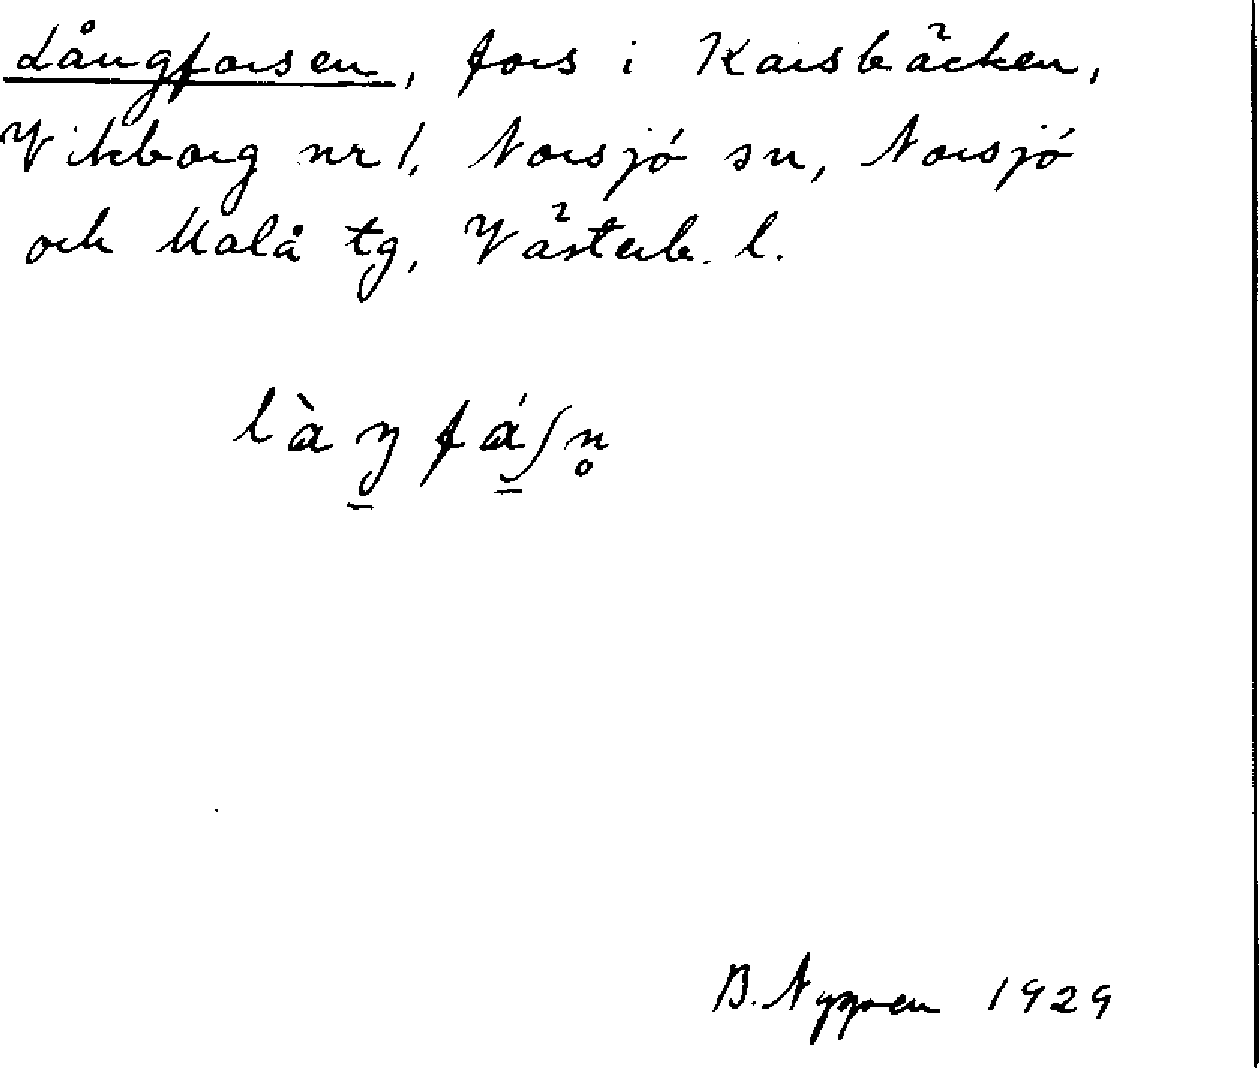 Långforsen, fors i Karsbäcken,
Vikborg nr 1, Norsjö sn, Norsjö
och Malå tg, Västerb. l.
làŋfáʃn̥
B. Nyman 1929